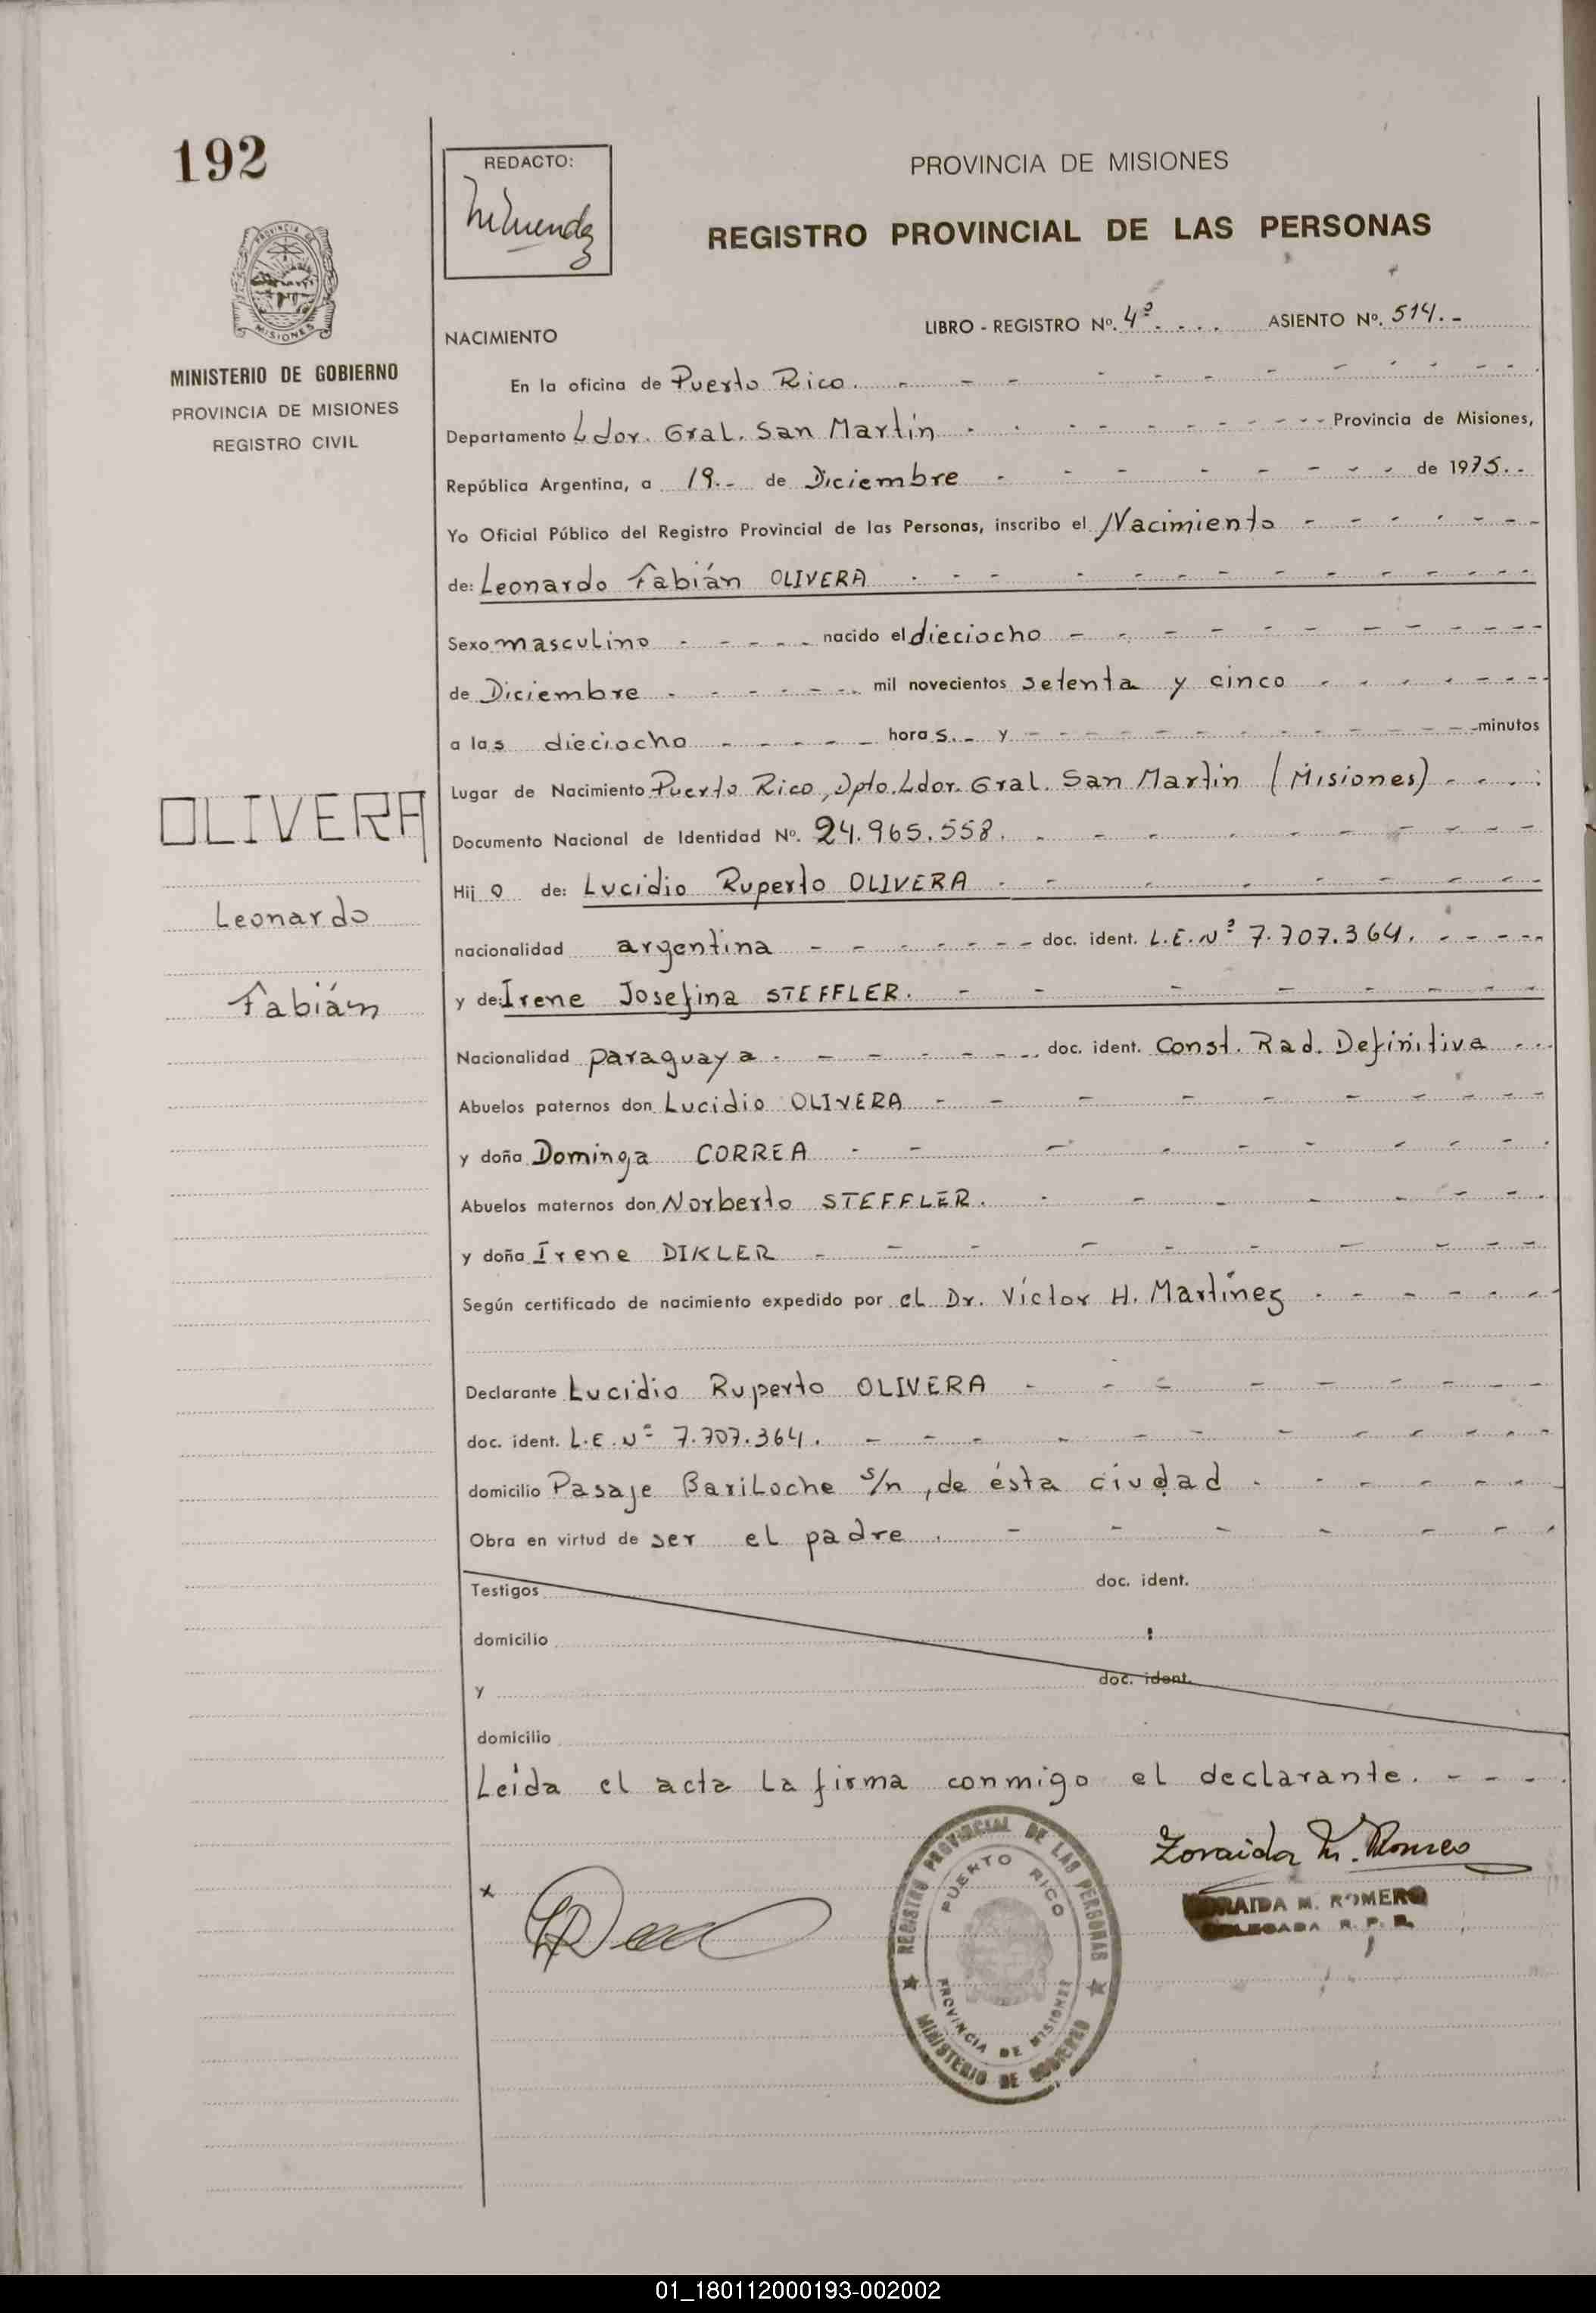 192
REDACTO:
PROVINCIA DE MISIONES
REGISTRO PROVINCIAL DE LAS PERSONAS
PROVINCIA DE
MISIONES
MINISTERIO DE GOBIERNO
PROVINCIA DE MISIONES
REGISTRO CIVIL
NACIMIENTO
LIBRO - REGISTRO Nº. 4º. ASIENTO Nº. 514.-
En la oficina de Puerto Rico.
Departamento Ldor. Gral. San Martín Provincia de Misiones,
República Argentina, a 19.- de Diciembre de 1975.-
Yo Oficial Público del Registro Provincial de las Personas, inscribo el Nacimiento
de: Leonardo Fabián OLIVERA
Sexo masculino nacido el dieciocho
de Diciembre mil novecientos setenta y cinco
a las dieciocho horas.- y minutos
Lugar de Nacimiento Puerto Rico, Dpto. Ldor. Gral. San Martín (Misiones)
Documento Nacional de Identidad Nº. 24.965.558.
Hijo de: Lucidio Ruperto OLIVERA
nacionalidad argentina doc. ident. L.E.Nº 7.707.364.
y de: Irene Josefina STEFFLER.
Nacionalidad paraguaya doc. ident. Const. Rad. Definitiva
Abuelos paternos don Lucidio OLIVERA
y doña Dominga CORREA
Abuelos maternos don Norberto STEFFLER.
y doña Irene DIKLER
Según certificado de nacimiento expedido por el Dr. Víctor H. Martínez
Declarante Lucidio Ruperto OLIVERA
doc. ident. L.E.Nº 7.707.364.
domicilio Pasaje Bariloche s/n, de ésta ciudad
Obra en virtud de ser el padre
Testigos doc. ident.
domicilio
y doc. ident.
domicilio
Leída el acta la firma conmigo el declarante.
OLIVERA
Leonardo
Fabián
REGISTRO PROVINCIAL DE LAS PERSONAS
PUERTO RICO
PROVINCIA DE MISIONES
MINISTERIO DE GOBIERNO
Zoraida M. Romero
ZORAIDA M. ROMERO
DELEGADA R. P. P.
01_180112000193-002002